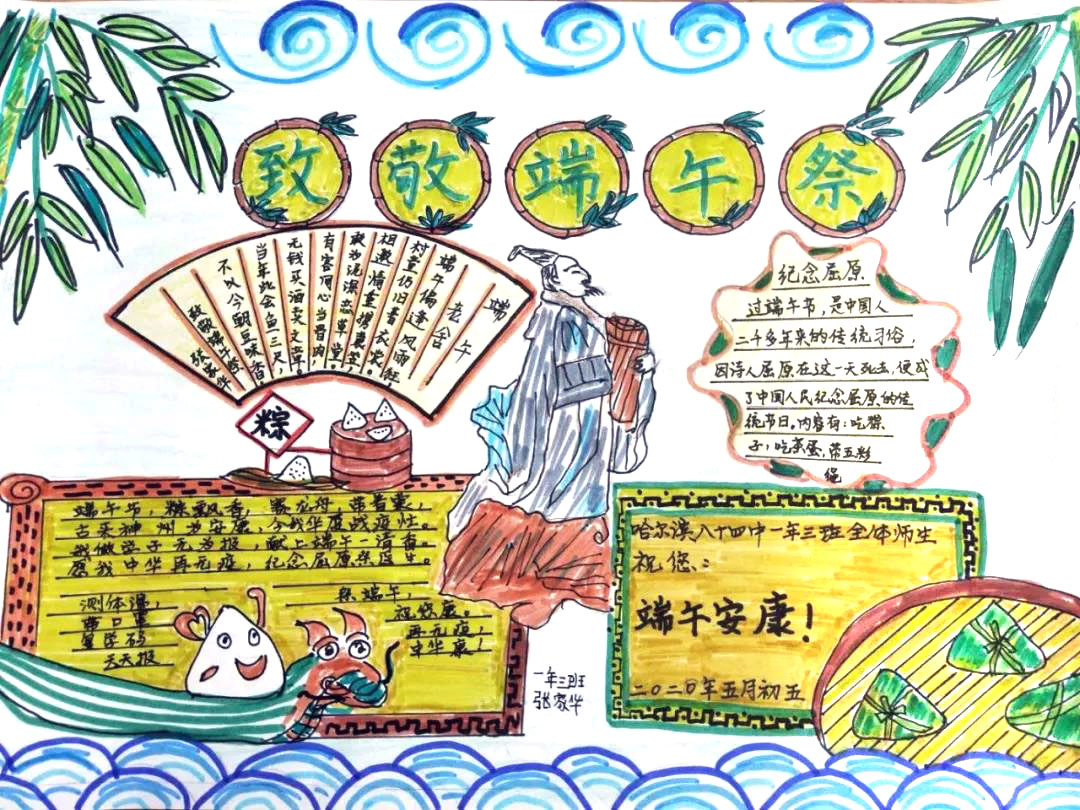 致敬端午祭
端午
老舍
端午偏逢风雨狂
村童仍旧着衣裳
相邀情重携蓑笠
敢为泥深恋草堂
有客同心当骨肉，
无钱买酒卖文章。
当年此会鱼三尺，
不似今朝豆味香。
致敬端午祭
粽
纪念屈原
过端午节，是中国人
二千多年来的传统习俗，
因诗人屈原在这一天死去，便成
了中国人民纪念屈原的传
统节日。内容有：吃粽
子，吃茶蛋，带五彩
绳
端午节，粽飘香，赛龙舟，带香囊，
古来神州为安康，今我华夏战疫忙。
我做学子无为报，献上端午一清香。
愿我中华再无疫，纪念屈原祭医生。
测体温，
带口罩
量学码
天天报
祭端午，
祝安康。
再无疫，
中华赢！
一年三班
哈尔滨八十四中一年三班全体师生
祝您：
端午安康！
二〇二〇年五月初五